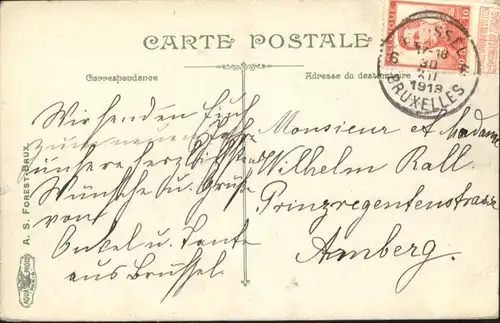 CARTE POSTALE
Correspondance
Adresse du destinataire
BRUSSEL
17-18
30
XII
1913
BRUXELLES
6 6
10
Wir senden Euch
zum neuen Jahre
unsere herzlichsten
Wünsche u. Grüße
von
Onkel u. Tante
aus Brüssel
Monsieur et Madame
Wilhelm Rall.
Prinzregentenstrasse
Amberg.
A. S. FOREST-BRUX.